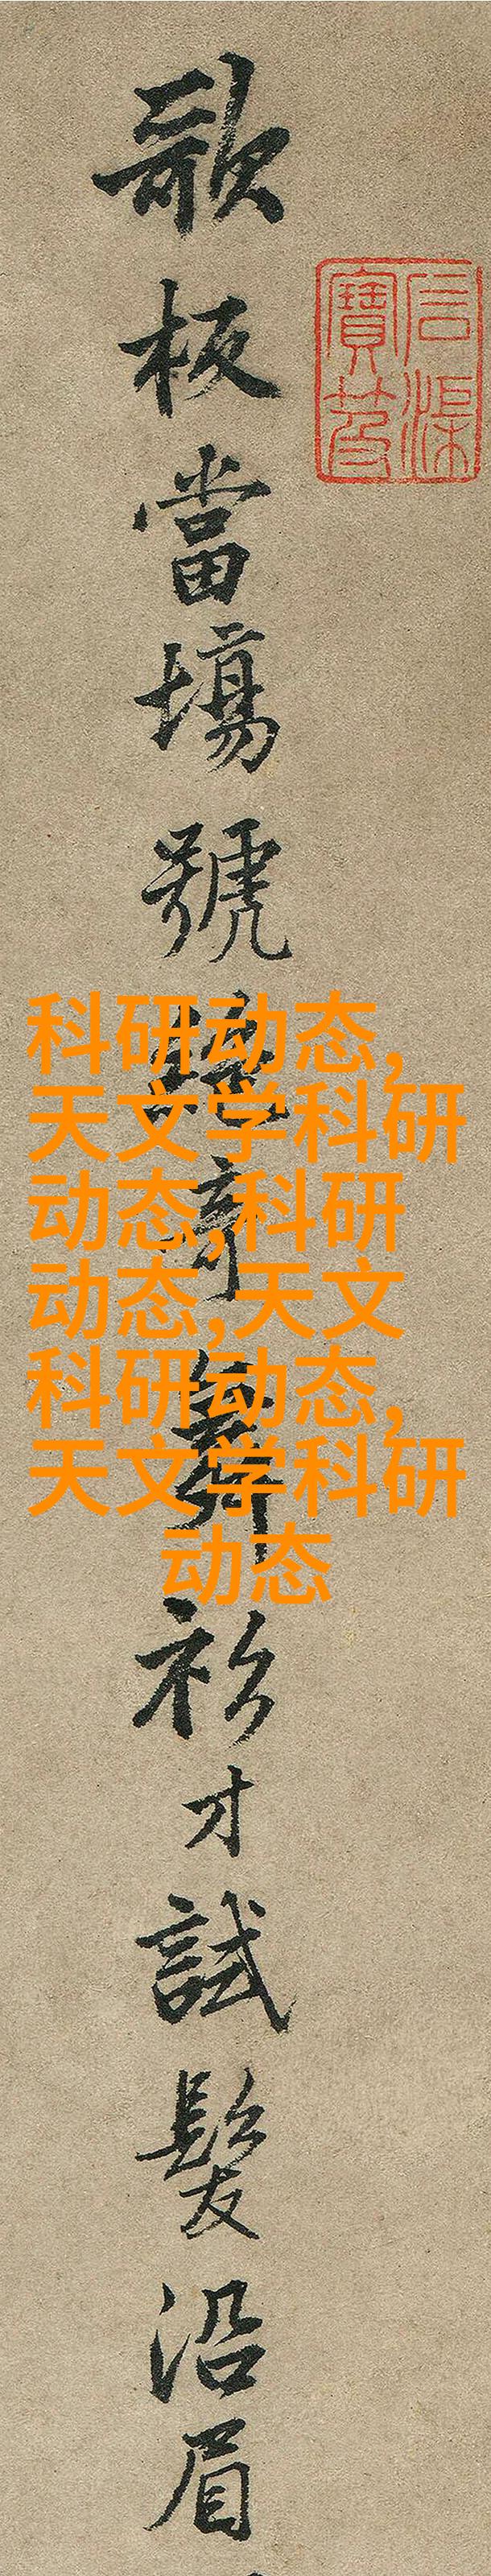 石渠
寶笈
歌板當塲號絕奇舞衫才試髮沿眉
科研动态,
天文学科研
动态,科研
动态,天文
科研动态,
天文学科研
动态